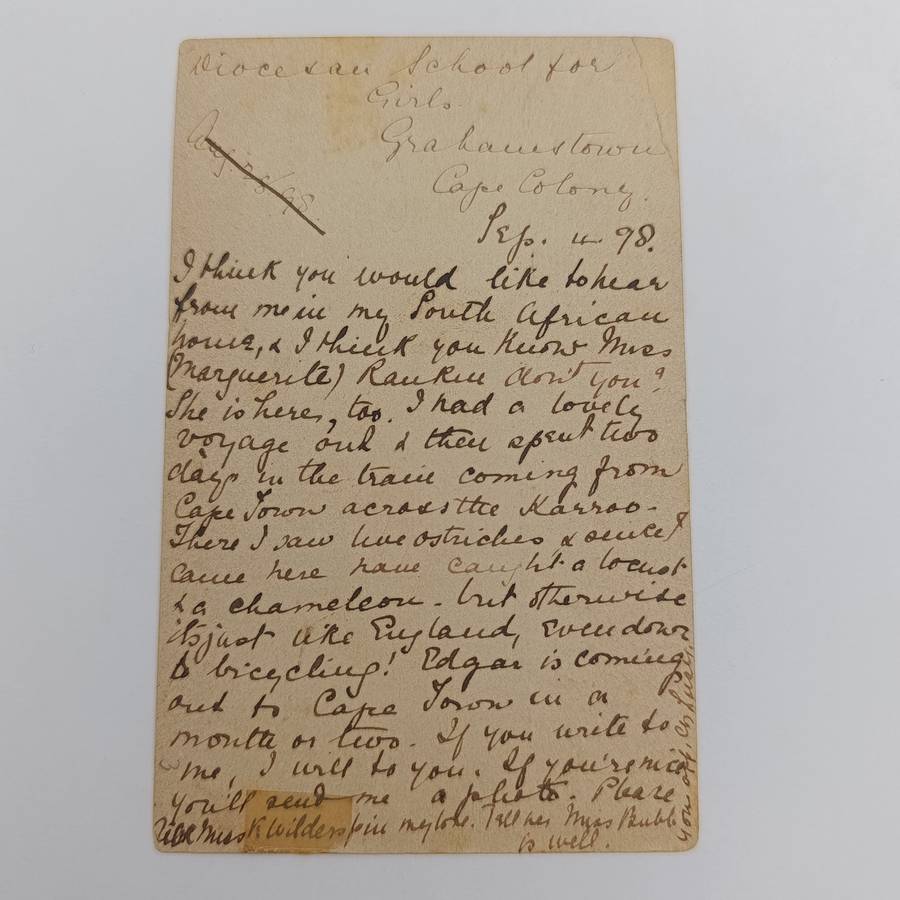 Diocesan School for
Girls.
Grahamstown
Cape Colony.
Aug 28/98.
Sep. 4 98.
I think you would like to hear
from me in my South African
home, & I think you know Miss
(Marguerite) Rankin don't you?
She is here, too. I had a lovely
voyage out & then spent two
days in the train coming from
Cape Town across the Karroo.
There I saw live ostriches, & since I
came here have caught a locust
& a chameleon. but otherwise
its just like England, even down
to bicycling! Edgar is coming
out to Cape Town in a
month or two. If you write to
me, I will to you. If you're nice
you'll send me a photo. Please
Miss K Wilders my love. Tell her Miss Bubb
is well.